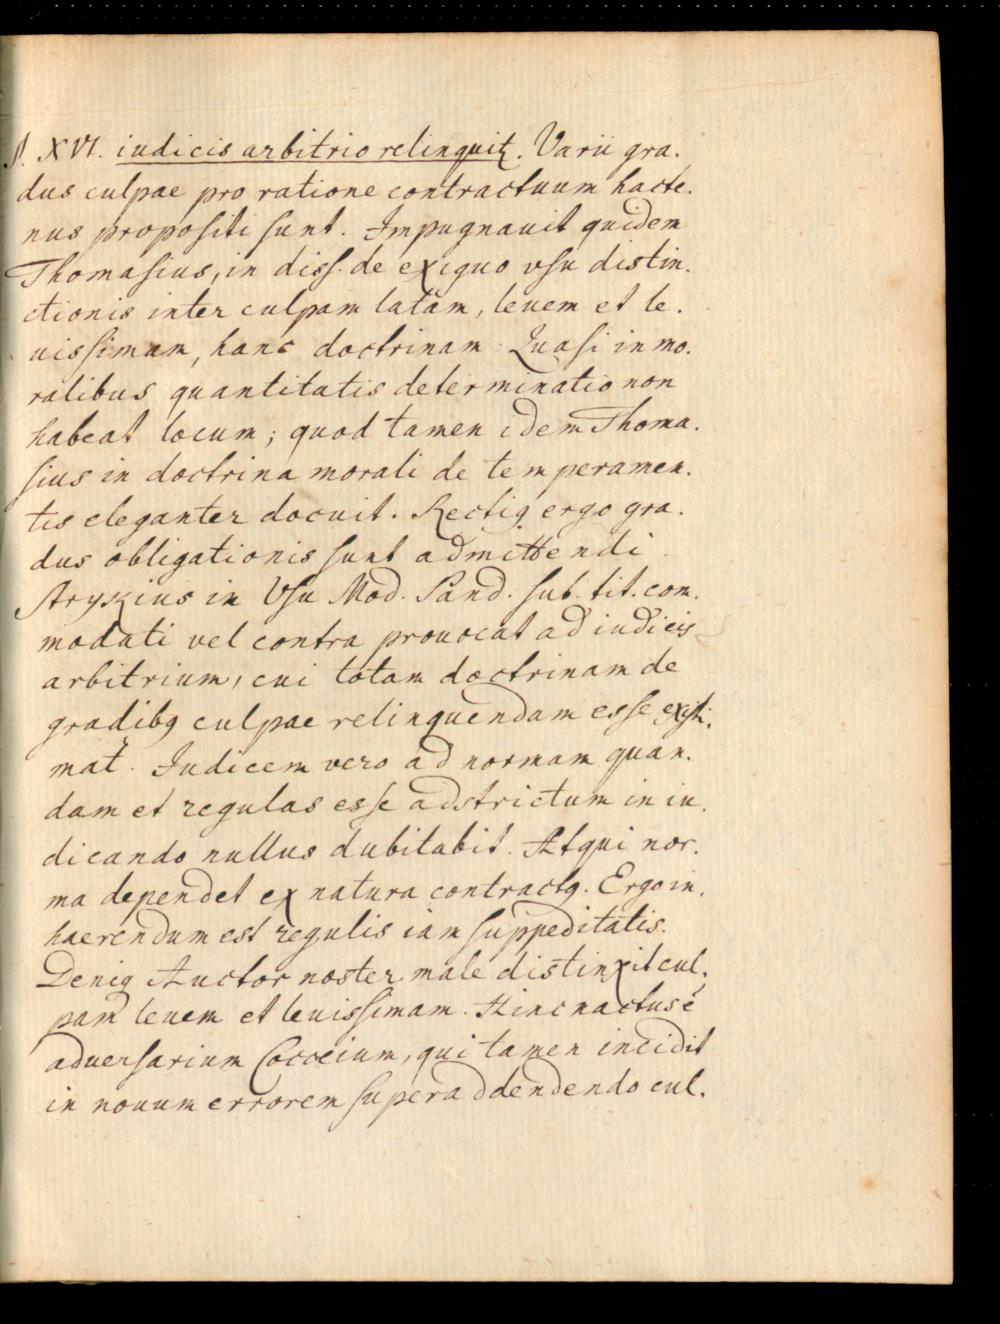 §. XVI. iudicis arbitrio relinquit. Varii gra.
dus culpae pro ratione contractuum hacte.
nus propositi sunt. Impugnauit quidem
Thomasius, in diss. de exiguo vsu distin.
ctionis inter culpam latam, leuem et le.
uissimam, hanc doctrinam. Quasi in mo.
ralibus quantitatis determinatio non
habeat locum; quod tamen idem Thoma.
sius in doctrina morali de temperamen.
tis eleganter docuit. Rectiq ergo gra.
dus obligationis sunt admittendi.
Strykius in Vsu Mod. Pand. sub. tit. com.
modati vel contra prouocat ad iudicis
arbitrium, cui totam doctrinam de
gradibq culpae relinquendam esse existi.
mat. Iudicem vero ad normam quan.
dam et regulas esse adstrictum in iu.
dicando nullus dubitabit. Atqui nor.
ma dependet ex natura contractq. Ergo in.
haerendum est regulis iam suppeditatis.
Deniq Auctor noster male distinxit cul.
pam leuem et leuissimam. Hinc nactus é
aduersarium Cocceium, qui tamen incidit
in nouum errorem superaddendendo cul.